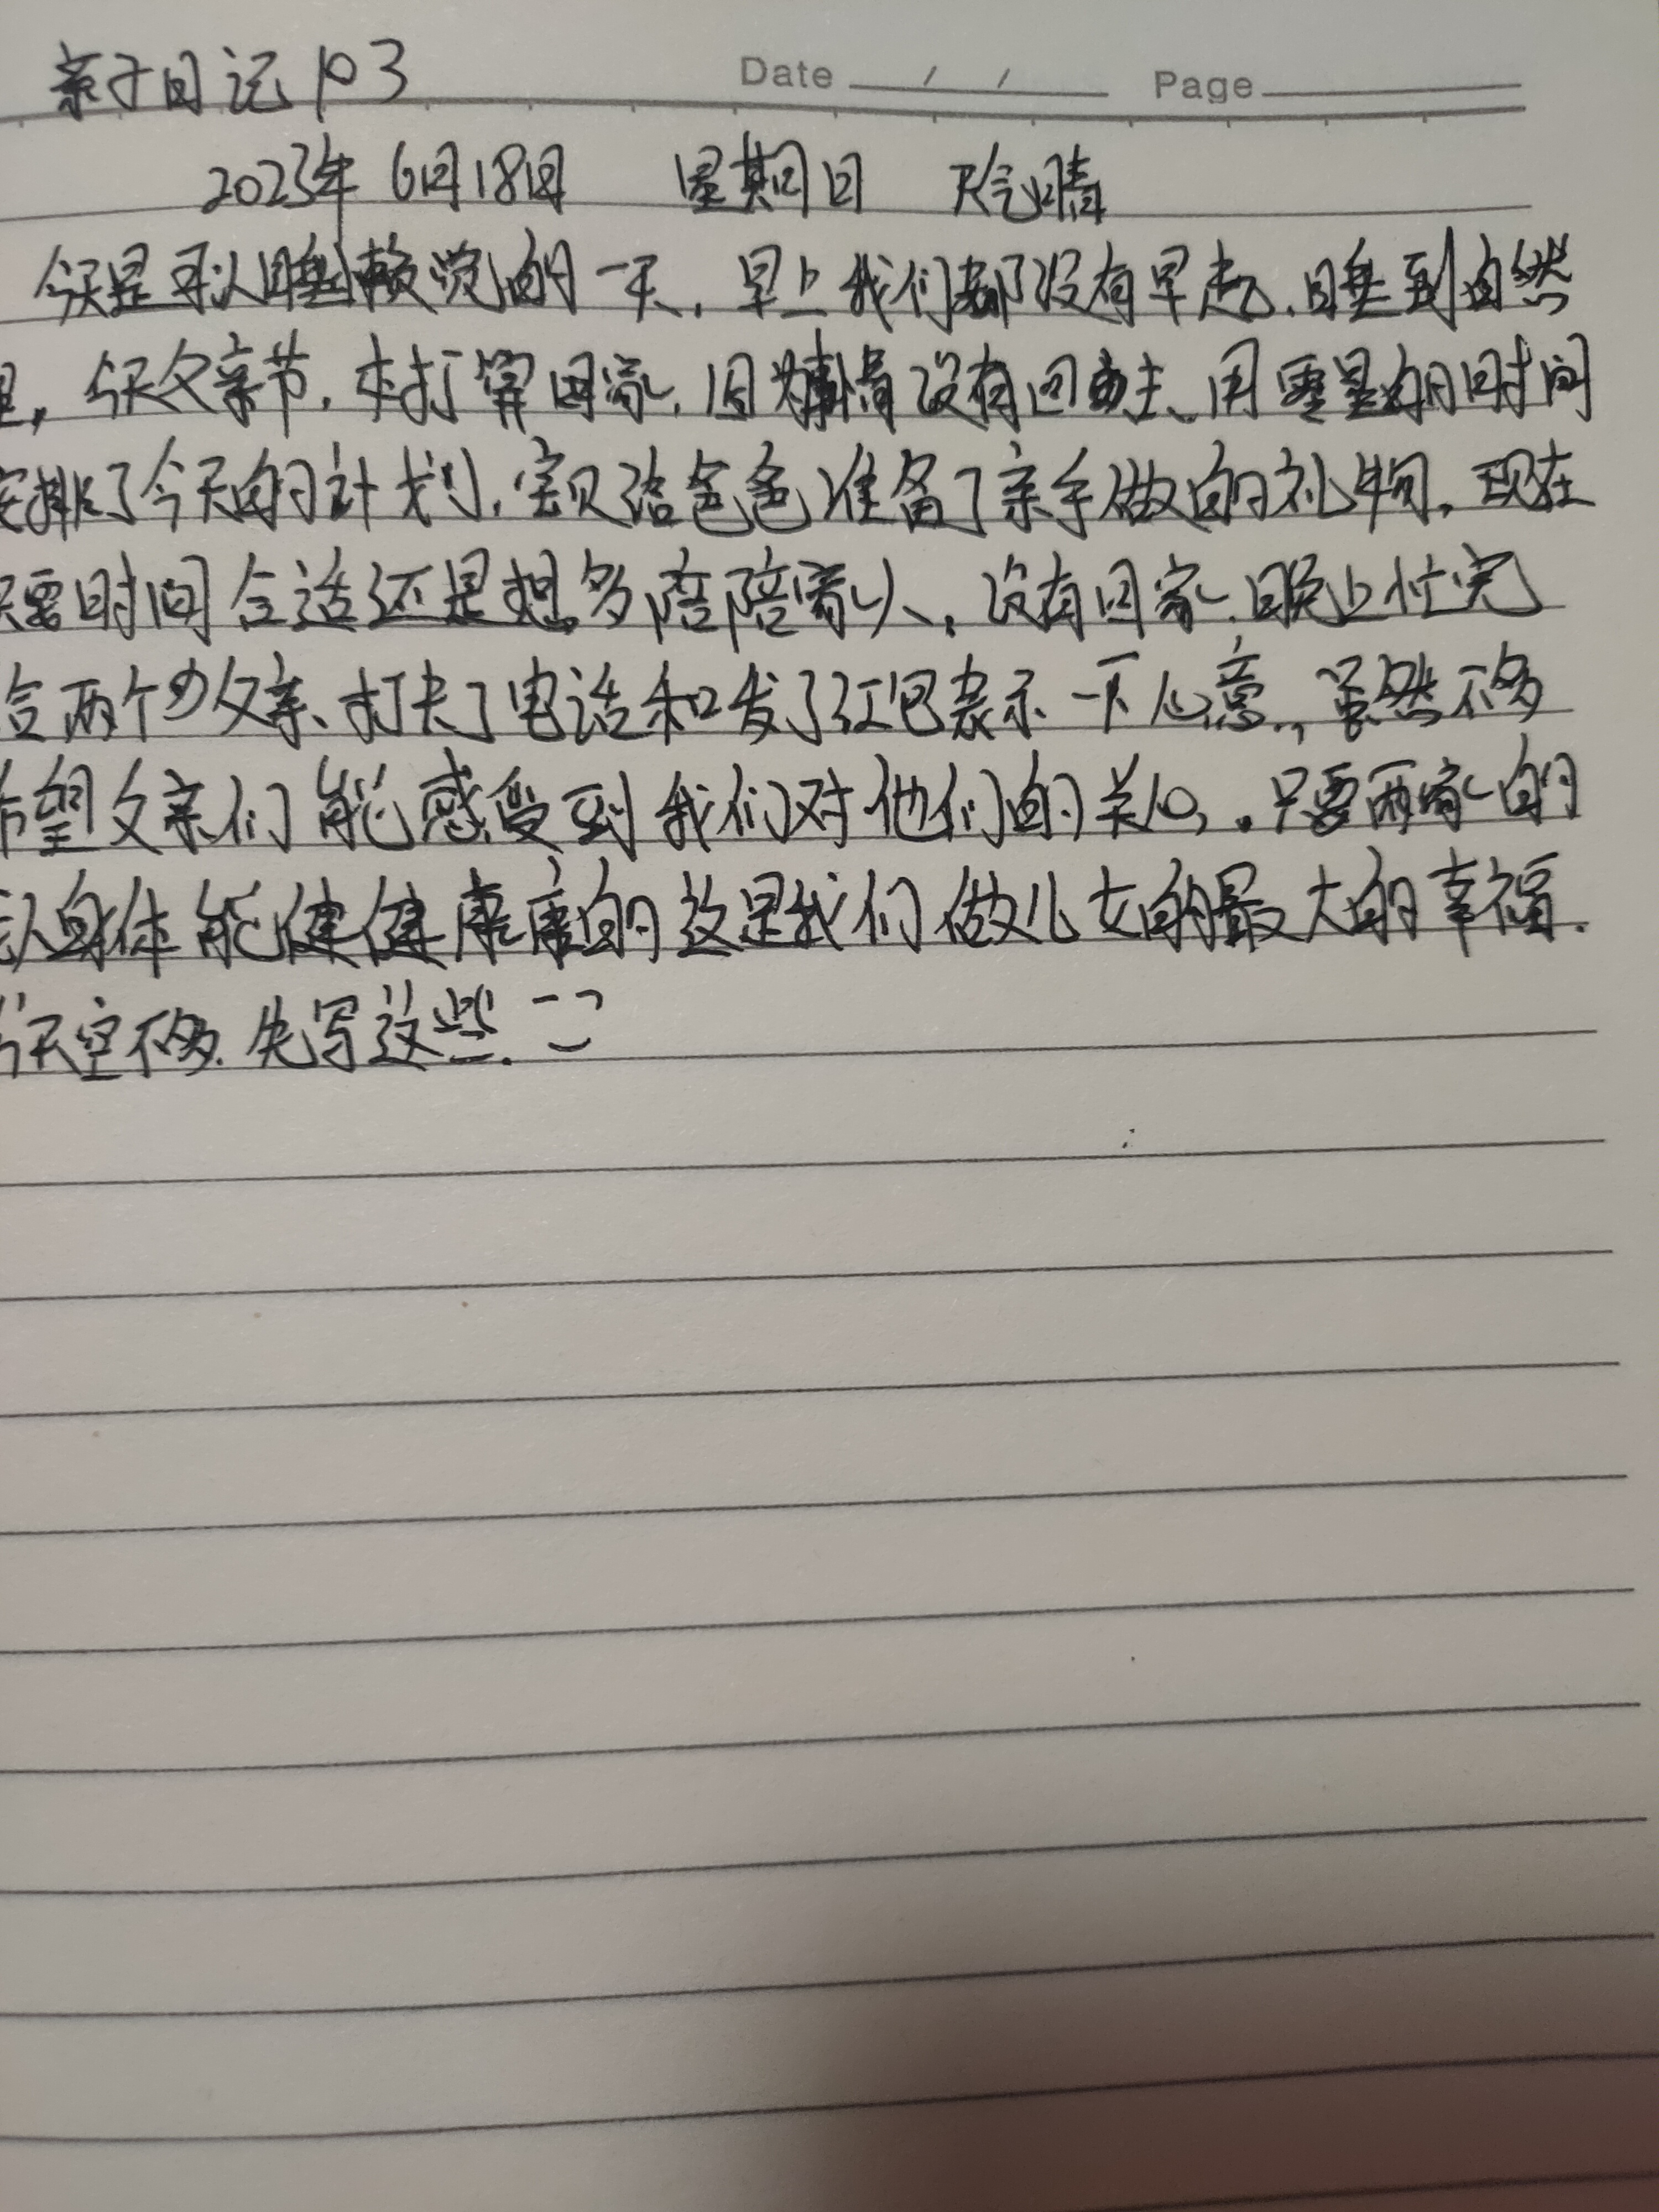 亲子日记 103 Date / / Page
2023年 6月18日 星期日 天气晴
今天是可以睡懒觉的一天，早上我们都没有早起，睡到自然
，今天父亲节，本打算回家，因为事情没有回去，用零星的时间
安排了今天的计划，宝贝给爸爸准备了亲手做的礼物，现在
只要时间合适还是想多陪陪家人，没有回家，晚上忙完
给两个父亲、打去了电话和发了红包表示一下心意，虽然不多
希望父亲们能感受到我们对他们的关心，只要两家的
身体能健健康康的这是我们做儿女的最大的幸福.
今天空不多.先写这些.